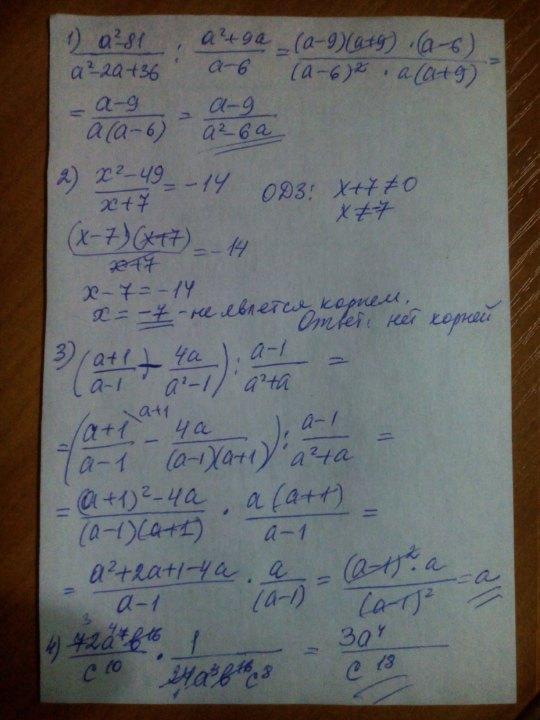 1) (a²-81)/(a²-2a+36) : (a²+9a)/(a-6) = ((a-9)(a+9)·(a-6))/((a-6)²·a(a+9)) =
= (a-9)/(a(a-6)) = (a-9)/(a²-6a)
2) (x²-49)/(x+7) = -14 ОДЗ: x+7≠0
x≠-7
((x-7)(x+7))/(x+7) = -14
x-7=-14
x = -7 - не явлется корнем.
Ответ: нет корней
3) ((a+1)/(a-1) - 4a/(a²-1)) : (a-1)/(a²+a) =
= ((a+1)/(a-1) \a+1 - 4a/((a-1)(a+1))) : (a-1)/(a²+a) =
= ((a+1)²-4a)/((a-1)(a+1)) · (a(a+1))/(a-1) =
= (a²+2a+1-4a)/(a-1) · a/(a-1) = ((a-1)²·a)/(a-1)² = a
4) 72a⁷b¹⁶/c¹⁰ · 1/(24a³b¹⁶c⁸) = 3a⁴/c¹⁸